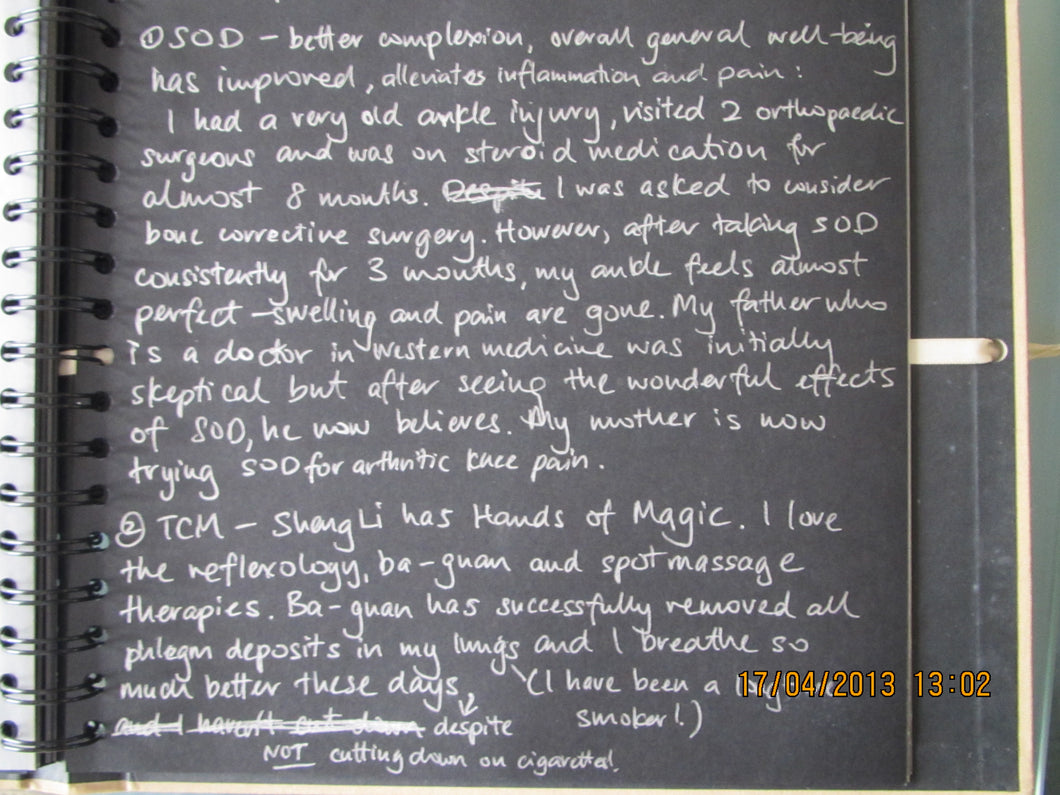 ① SOD – better complexion, overall general well-being
has improved, alleviates inflammation and pain :
I had a very old ankle injury, visited 2 orthopaedic
surgeons and was on steroid medication for
almost 8 months. Despite I was asked to consider
bone corrective surgery. However, after taking SOD
consistently for 3 months, my ankle feels almost
perfect – swelling and pain are gone. My father who
is a doctor in western medicine was initially
skeptical but after seeing the wonderful effects
of SOD, he now believes. My mother is now
trying SOD for arthritic knee pain.
② TCM – Shang Li has Hands of Magic. I love
the reflexology, ba-guan and spot massage
therapies. Ba-guan has successfully removed all
phlegm deposits in my lungs and I breathe so
much better these days, (I have been a
17/04/2013 13:02
smoker!.)
and I haven't cut down despite
NOT cutting down on cigarettes!